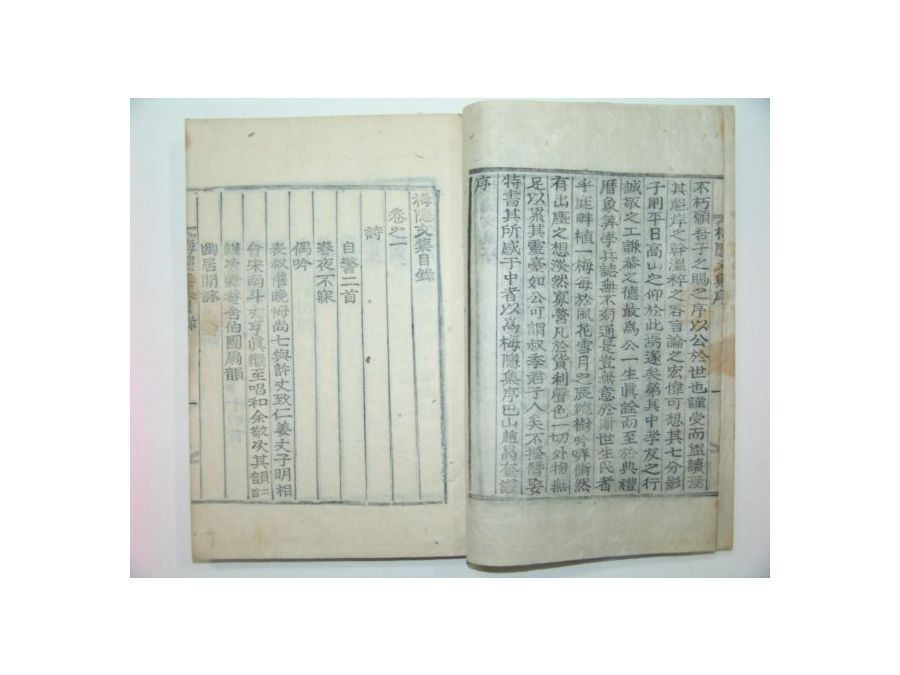 不朽顧吾子之賜之序以公於世也謹受而盥讀
其魁岸之幹溫粹之容言論之宏偉可想其七分影
子則平日高山之仰於此遂矣第其中孝友之行
誠敬之工謙恭之德最爲公一生眞詮而至於典禮
曆象筭學兵誌無不旁通是豈無意於斯世生民者
乎庭畔植一梅每於風花雪月之辰繞樹吟哢翛然
有出塵之想淡然寡營凡於貨利聲色一切外物無
足以累其靈臺如公可謂叔季君子人矣不揆僭妄
特書其所感于中者以爲梅隱集序巴山趙昺奎謹
序
梅隱文集序
梅隱文集目錄
卷之一
詩
自警二首
春夜不寐
偶吟
表叔權晩悔尚七與許丈致仁姜丈子明相
會宋南斗丈亨眞繼至唱和余敬次其韻二首
謹次 舍伯園扁韻
幽居閒詠